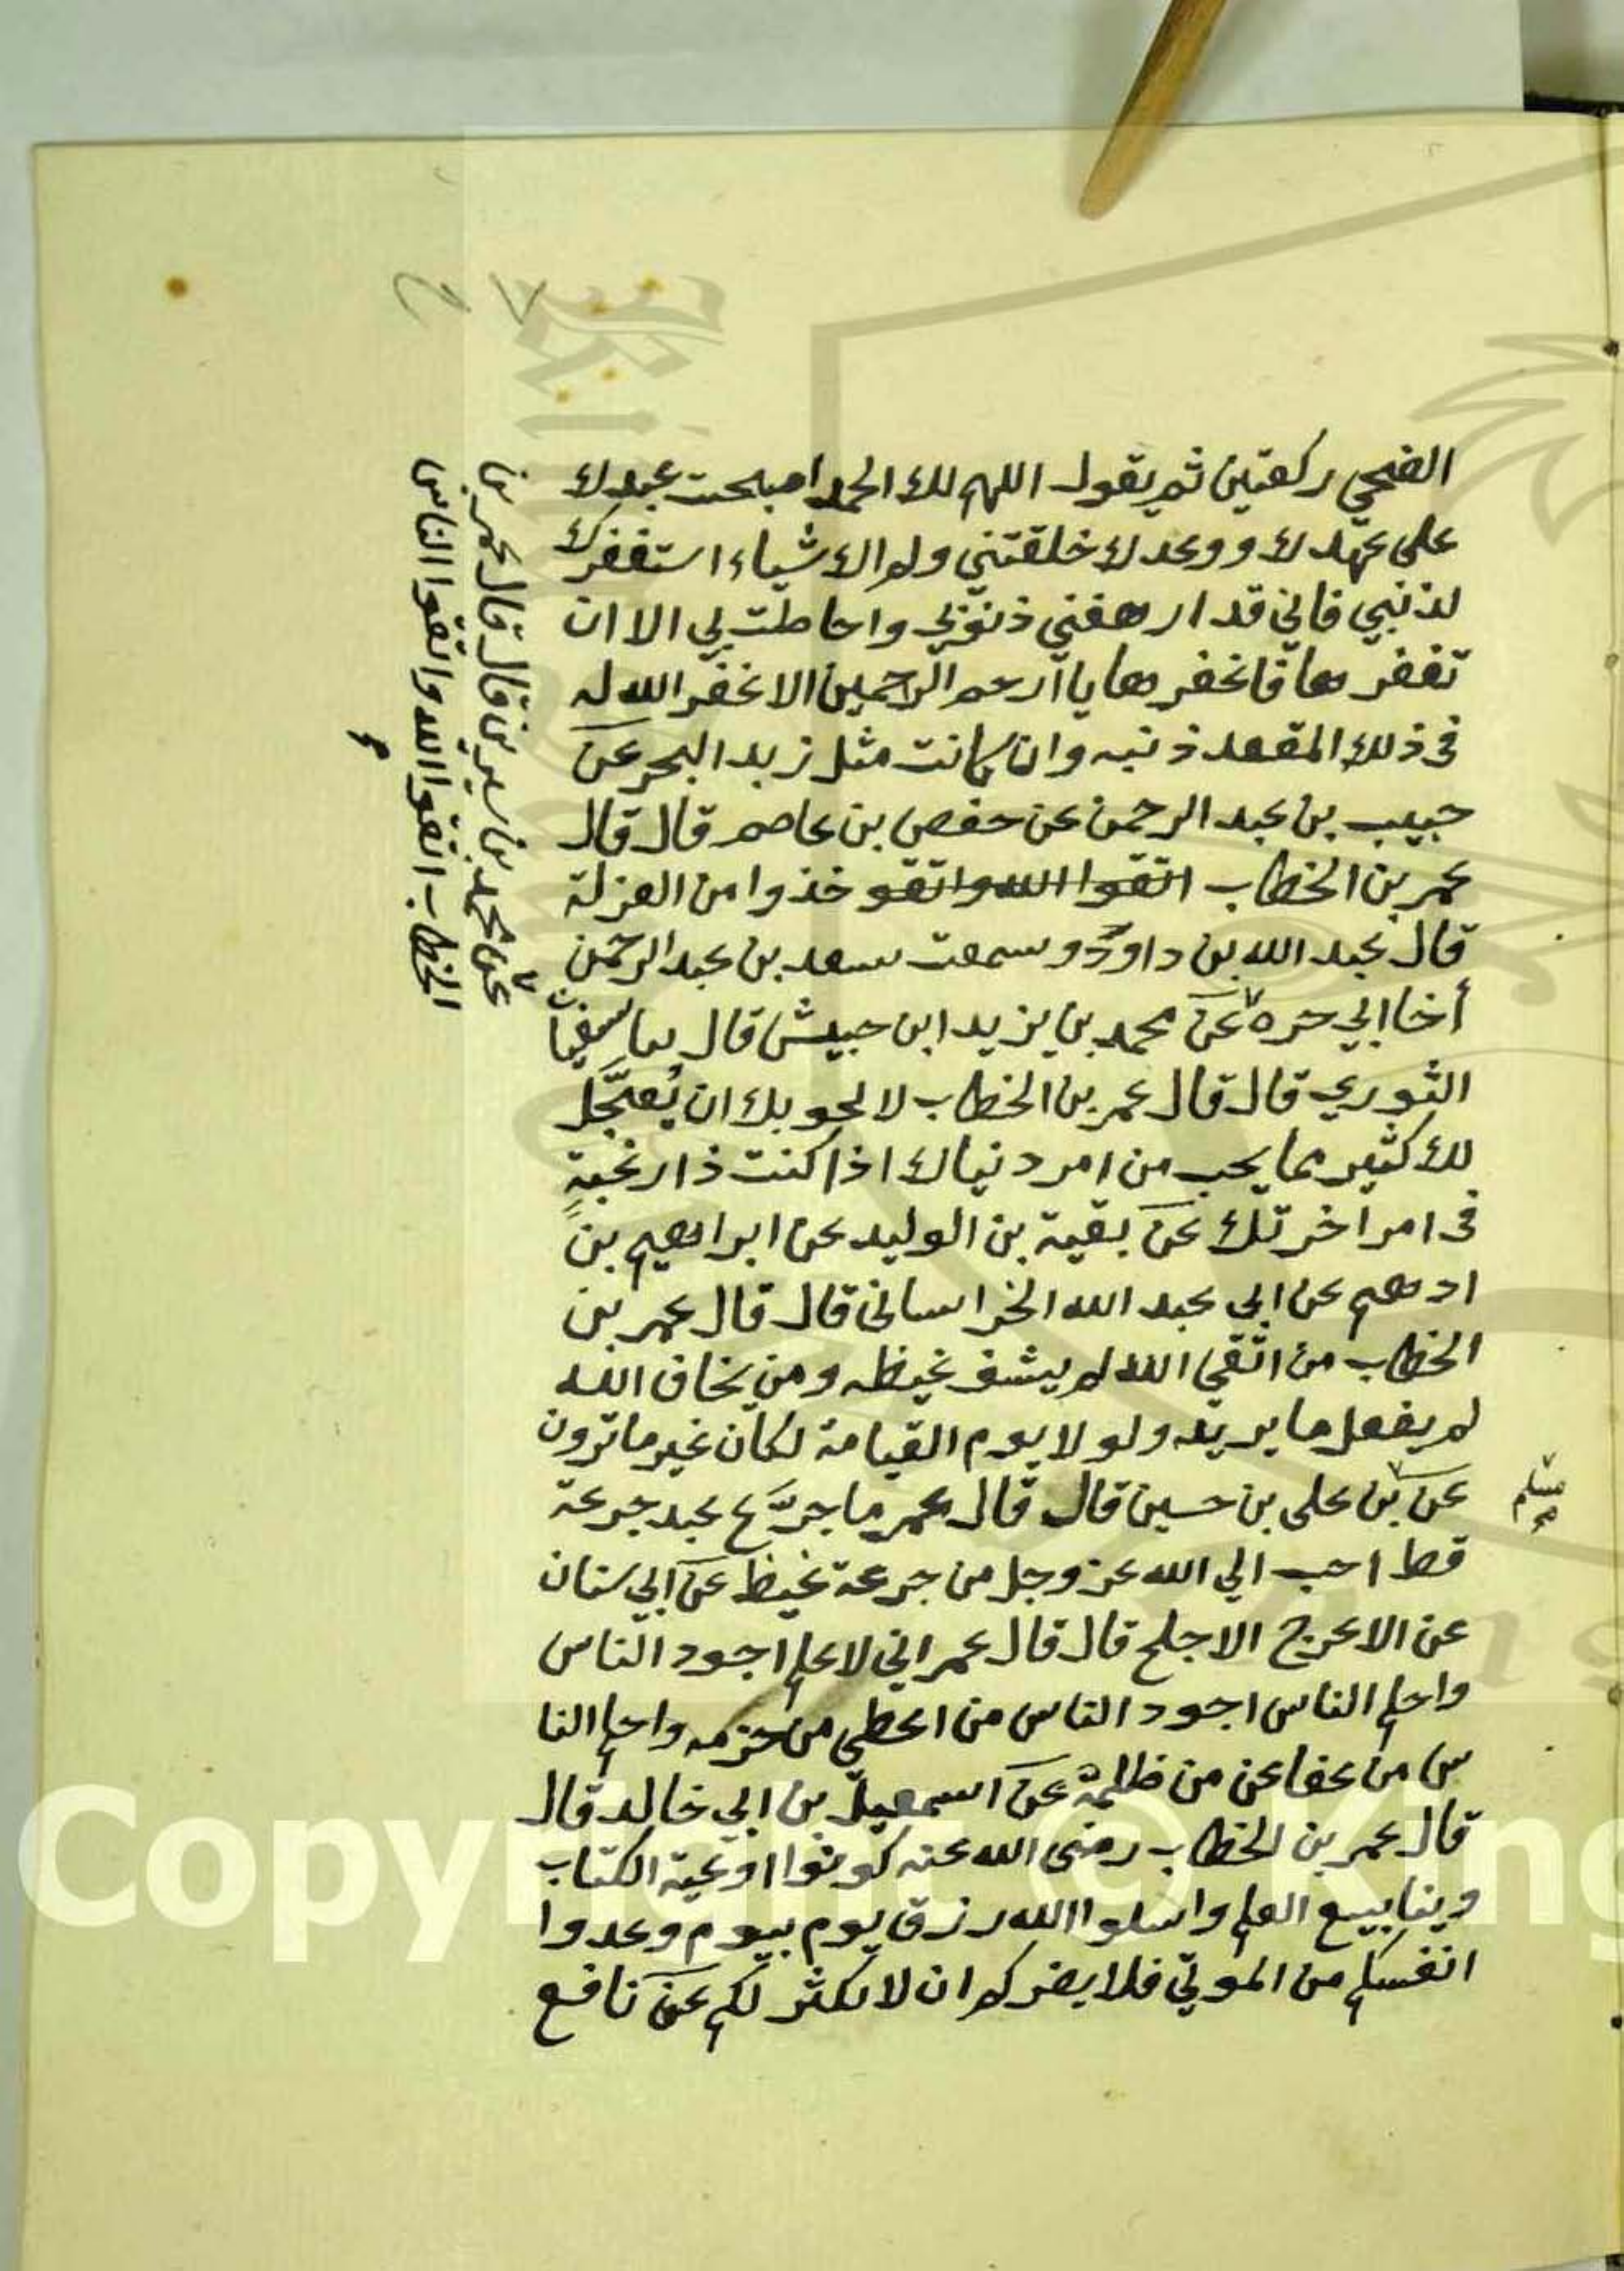 الضحي ركعتين ثم يقول اللهم لك الحمد اصبحت عبدك
على عهدك ووعدك خلقتني ولم الا شياء استغفرك
لذنبي فاني قد ارهقني ذنوبي واحاطت بي الا ان
تغفرها فاغفرها يا ارحم الراحمين الا غفر الله له
في ذلك المقعد ذنبه وان كانت مثل زبد البحر عن
حبيب بن عبد الرحمن عن حفص بن عاصم قال قال
عمر بن الخطاب اتقوا الله واتقو خذوا من العزلة
قال عبد الله بن داود وسمعت سعد بن عبد الرحمن
أخا ابي حره عن محمد بن يزيد ابن حبيش قال سفيان
الثوري قال قال عمر بن الخطاب ان يُعجّل
لك كثير مما يحب من امر دنياك اذا كنت ذا رغبةٍ
في امر اخرتك عن بقية بن الوليد عن ابراهيم بن
ادهم عن ابي عبد الله الخراساني قال قال عمر بن
الخطاب من اتقي الله لم يشف غيظه ومن يخاف الله
لم يفعل ما يريد ولو لا يوم القيامة لكان غير ما ترون
عن بن علي بن حسين قال قال عمر ما جرّع عبد جرعة
قط احب الي الله عز وجل من جرعة غيظ عن ابي سنان
عن الاعرج الاجلح قال قال عمر اني لاعلم اجود الناس
واحلم الناس اجود الناس من اعطي من حرمه واحلم النا
س من عفا عن من ظلمه عن اسمعيل بن ابي خالد قال
قال عمر بن الخطاب رضى الله عنه كونوا اوعية الكتاب
وينابيع العلم واسلوا الله رزق يوم بيوم وعدوا
انفسكم من الموتي فلا يضركم ان لا يكثر لكم عن نافع
عن محمد بن سيرين قال قال عمر بن
الخطاب اتقوا الله واتقوا الناس
مسلم
Copyright © King